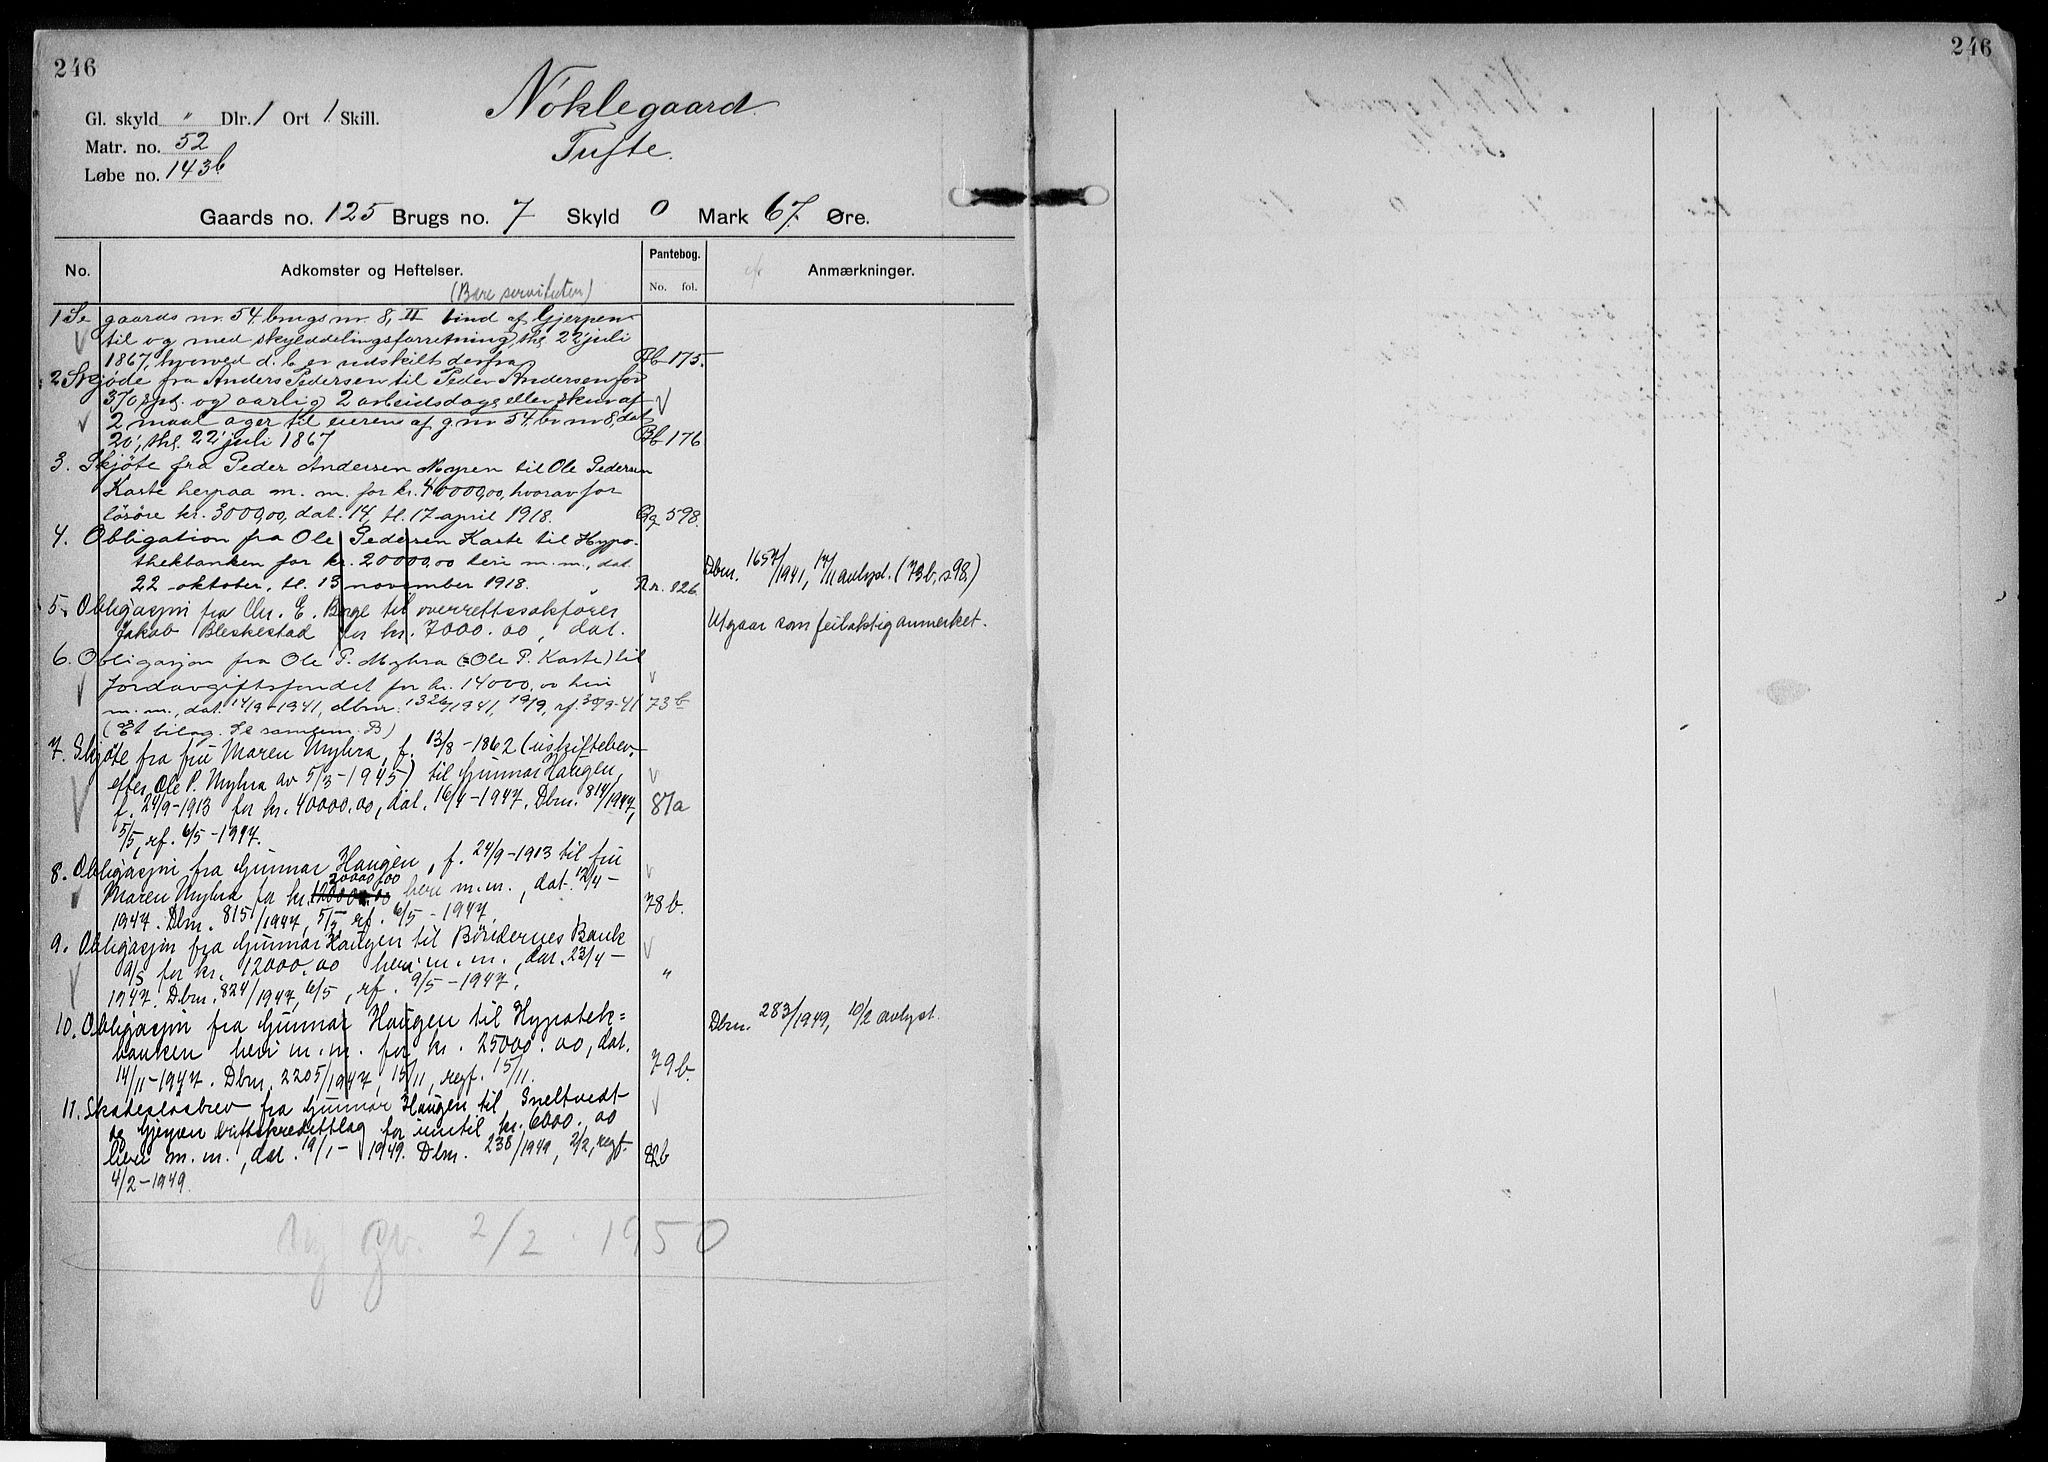 246
246
Nöklegaard.
Tufte.
Gl. skyld " Dlr. 1 Ort 1 Skill.
Matr. no. 52
Løbe no. 143b
Gaards no. 125 Brugs no. 7 Skyld 0 Mark 67. Øre.
No. Adkomster og Heftelser. Pantebog. No. fol. Anmærkninger.
(Bare serviteten)
1 Se gaards nr. 54 brugs nr. 8, II bind af Gjerpen
til og med skylddelingsforretning, thl. 22 juli
1867, hvorved d. b. er udskilt derfra
175.
2 Skjøde fra Anders Pedersen til Peder Andersen for
370 spd. og aarlig 2 arbeidsdage eller skur af
2 maal ager til eieren af g.nr 54, br nr 8, dat
20, thl. 22 juli 1867 Bb 176
3. Skjöte fra Peder Andersen Myren til Ole Pedersen
Kaste herpaa m. m. for kr. 40000,00, hvorav for
lösöre kr. 3000,00, dat. 14, tl. 17 april 1918. 598.
4. Obligation fra Ole Pedersen Kaste til Hypo-
thekbanken for kr. 20000,00 heri m. m., dat.
22 oktober, tl. 13 november 1918. 826.
Dbnr. 1657/1941, 17/11 avlyst. (73b, s 98.)
5. Obligasjon fra Chr. E. Borge til overrettssakfører
Jakob Bleskestad for kr. 7000.00, dat.
Utgaar som feilaktig anmerket.
6. Obligasjon fra Ole P. Myhra (= Ole P. Kaste) til
Jordavgiftsfondet for kr. 14000,00 heri
m. m., dat. 14/9-1941, dbnr. 1326/1941, 19/9, rf. 30/9-41 73b
(Et bilag. Se samlem. B)
7. Skjøte fra fru Maren Myhra, f. 13/8-1862 (uskiftebev.
efter Ole P. Myhra av 5/3-1945) til Gunnar Haugen,
f. 24/9-1913 for kr. 40000.00, dat. 16/4-1947. Dbnr. 814/1947,
5/5, rf. 6/5-1947.
81a
8. Obligasjon fra Gunnar Haugen, f. 24/9-1913 til fru
Maren Myhra for kr. 20000,00 heri m.m., dat. 12/4-
1947. Dbnr. 815/1947, 5/5, rf. 6/5-1947. 78b.
9. Obligasjon fra Gunnar Haugen til Bøndernes Bank
9/5 for kr. 12000.00 heri m.m., dat. 23/4-
1947. Dbnr. 824/1947, 6/5, rf. 9/5-1947. "
10. Obligasjon fra Gunnar Haugen til Hypotek=
banken heri m.m. for kr. 25000.00, dat.
14/11-1947. Dbnr. 2205/1947, 15/11, regf. 15/11. 79b.
Dbnr. 283/1949, 10/2 avlyst.
11. Skadesløsbrev fra Gunnar Haugen til Sneltvedt
og Gjerpen driftskredittlag for inntil kr. 6000.00
heri m.m., dat. 19/1-1949. Dbnr. 238/1949, 2/2, regf. 82b
4/2-1949.
Ny gb. 2/2. 1950